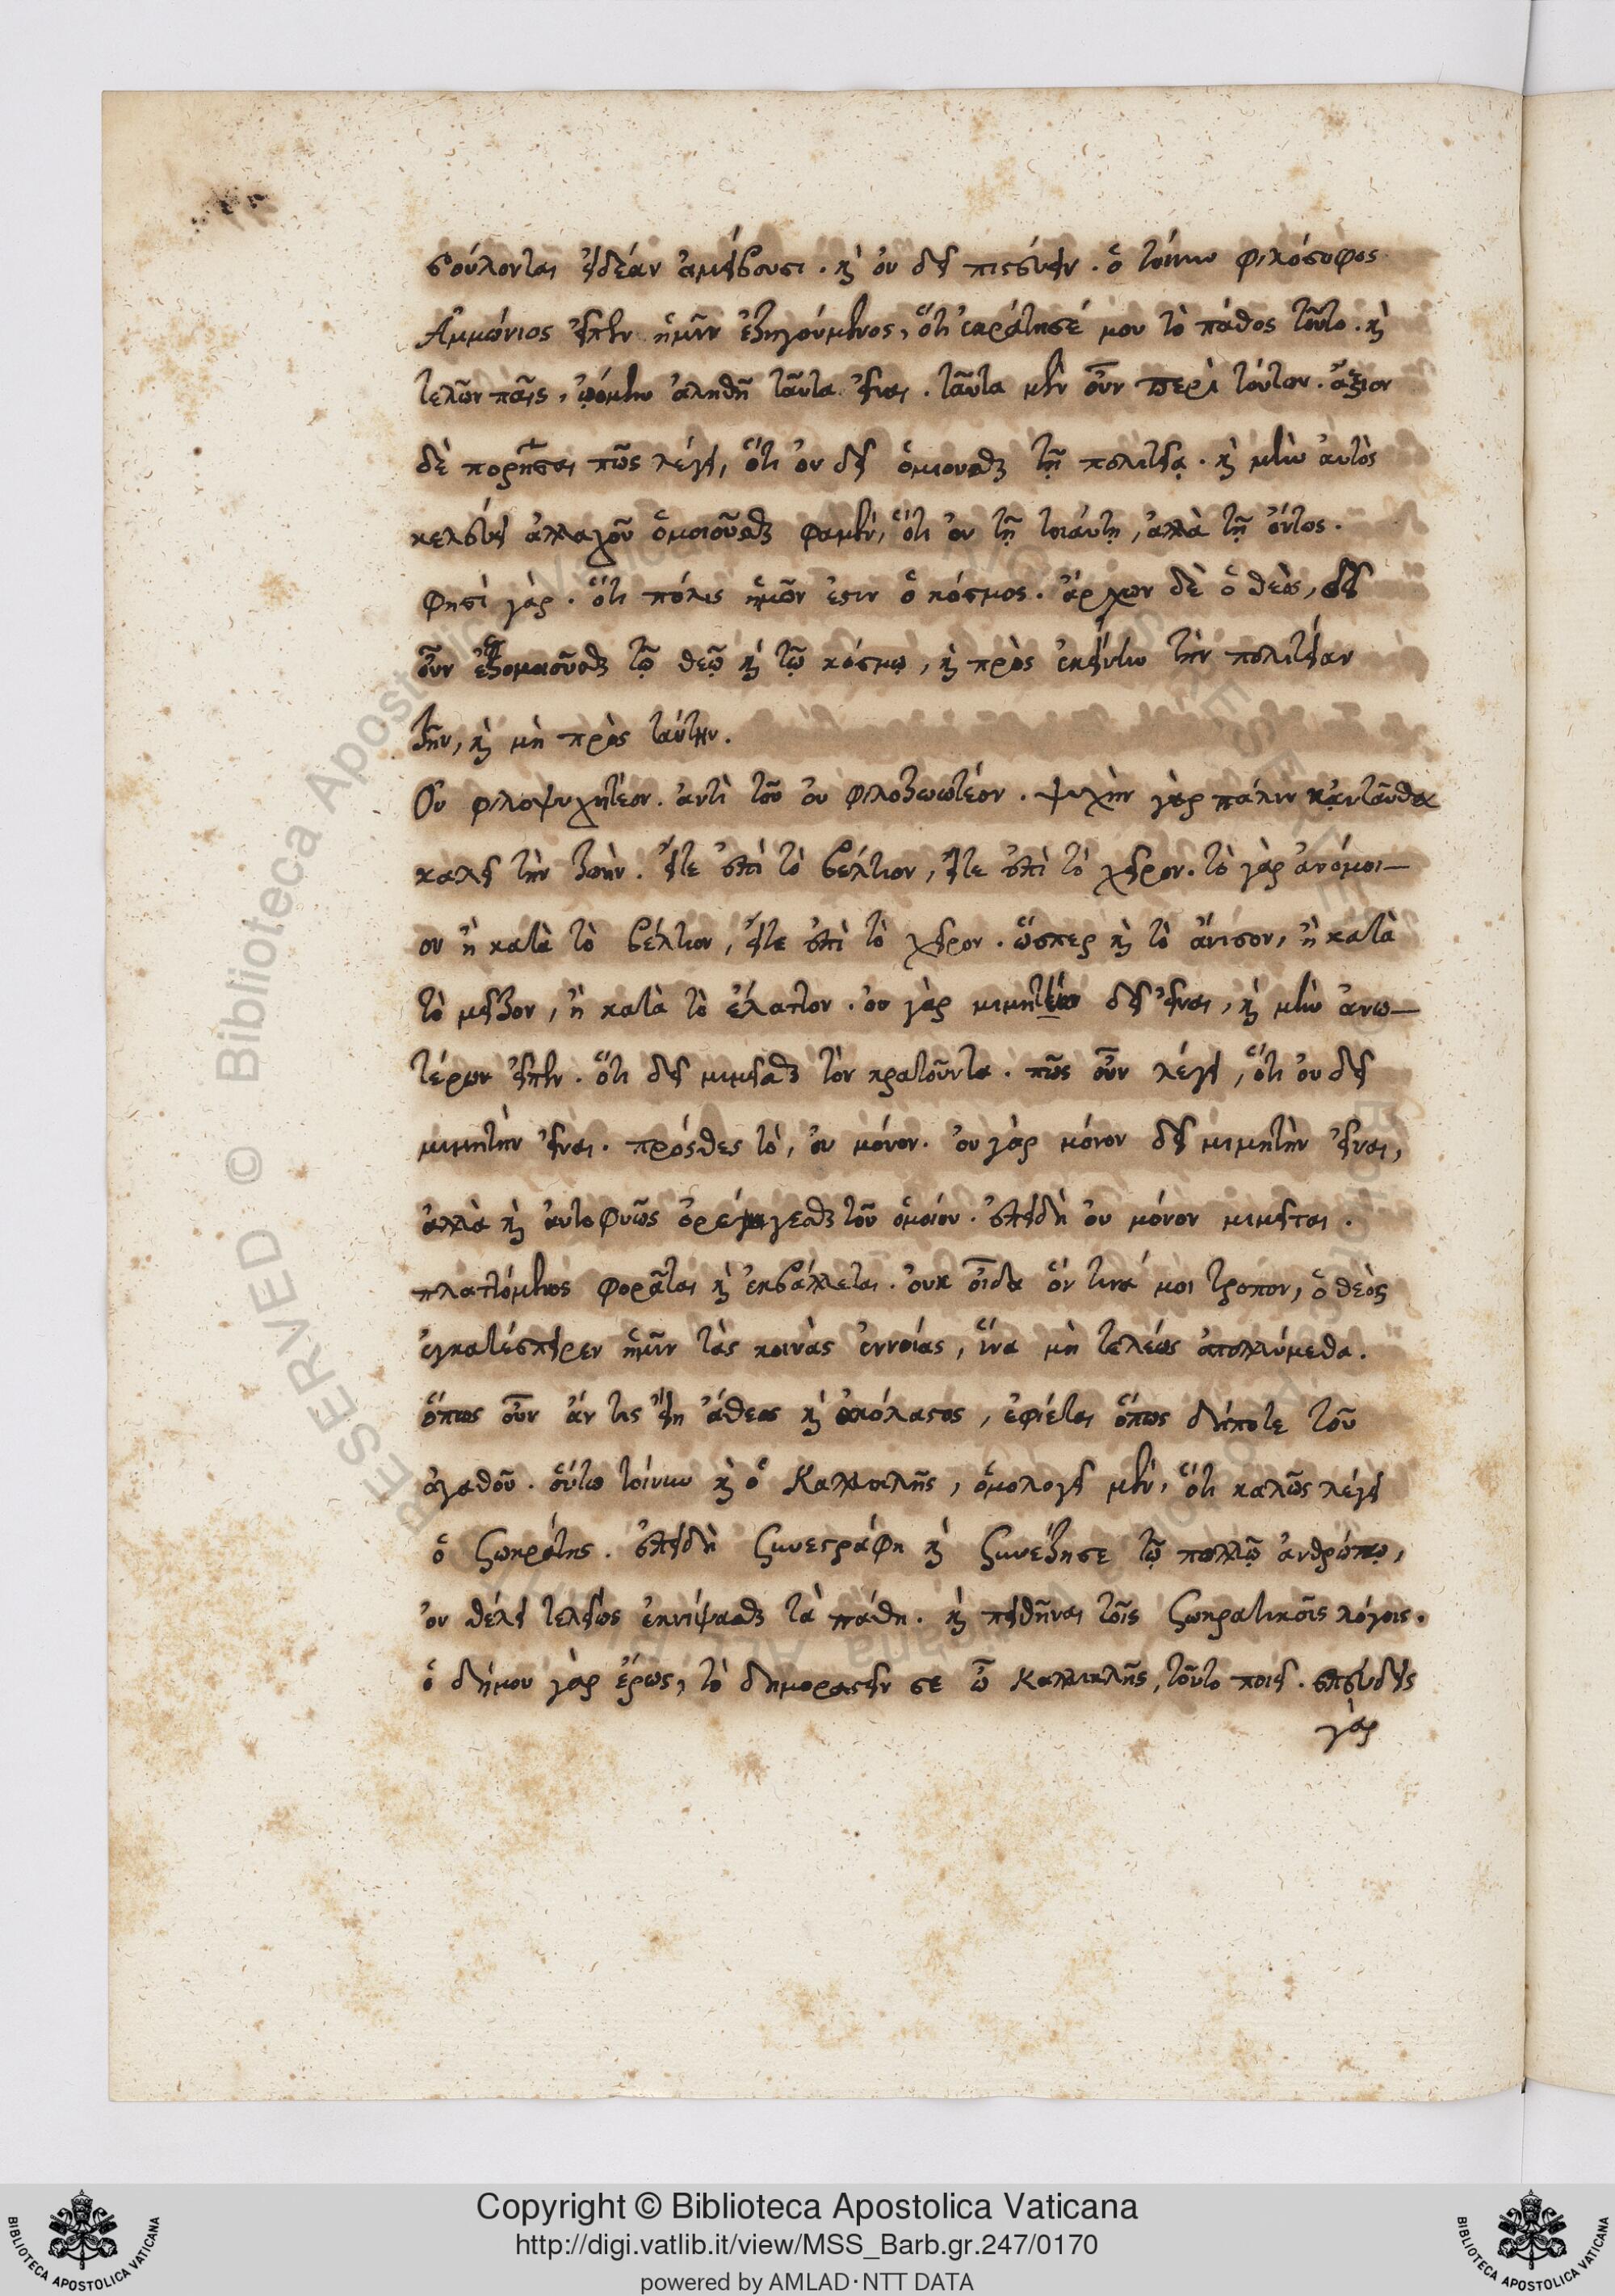 βούλονται ἰδέαν ἀμείβουσι. καὶ οὐ δεῖ πιστεύειν. ὁ τοίνυν φιλόσοφος
Ἀμμώνιος εἶπεν ἡμῖν ἐξηγούμενος, ὅτι ἐκράτησέ μου τὸ πάθος τοῦτο. καὶ
τελῶν παῖς, ᾠόμην ἀληθῆ ταῦτα εἶναι. ταῦτα μὲν οὖν περὶ τούτων. ἄξιον
δὲ πορῆσαι πῶς λέγει, ὅτι οὐ δεῖ ὁμιουσθαι τῇ πολιτείᾳ. καὶ μὴν αὐτὸς
κελεύει ἀλλαχοῦ ὁμοιοῦσθαι φαμὲν, ὅτι οὐ τῇ τοιαύτῃ, ἀλλὰ τῇ ὄντως.
φησί γάρ. ὅτι πόλις ἡμῶν ἐστιν ὁ κόσμος. ἄρχων δὲ ὁ θεὸς, δεῖ
οὖν ἐξομοιοῦσθαι τῷ θεῷ καὶ τῷ κόσμῳ, καὶ πρὸς ἐκείνην τὴν πολιτείαν
ζῆν, καὶ μὴ πρὸς ταύτην.
Οὐ φιλοψυχητέον. ἀντὶ τοῦ οὐ φιλοζωωτέον. ψυχὴν γὰρ πάλιν κἀνταῦθα
καλεῖ τὴν ζωήν. εἴτε ἐπὶ τὸ βέλτιον, εἴτε ἐπὶ τὸ χεῖρον. τὸ γὰρ ἀνόμοι-
ον ἢ κατὰ τὸ βέλτιον, εἴτε ἐπὶ τὸ χεῖρον. ὥσπερ καὶ τὸ ἄνισον, ἢ κατὰ
τὸ μεῖζον, ἢ κατὰ τὸ ἔλαττον. οὐ γὰρ δεῖ εἶναι, καὶ μὴν ἀνω-
τέρων εἶπεν. ὅτι δεῖ μιμεῖσθαι τὸν κρατοῦντα. πῶς οὖν λέγει, ὅτι οὐ δεῖ
μιμητὴν εἶναι. πρόσθες τό, οὐ μόνον. οὐ γὰρ μόνον δεῖ μιμητὴν εἶναι,
ἀλλὰ καὶ αὐτοφυῶς ὀρέγεσθαι τοῦ ὁμοίου. ἐπειδὴ οὐ μόνον μιμεῖται.
πλαττόμενος φορᾶται καὶ ἐκβάλλεται. οὐκ οἶδα ὅν τινά μοι τρόπον, ὁ θεὸς
ἐγκατέσπειρεν ἡμῖν τὰς κοινὰς ἐννοίας, ἵνα μὴ τελέως ἀπολλύμεθα.
ὅπως οὖν ἄν τις εἴη ἄθεος καὶ ἀκόλαστος, ἐφίεται ὅπως δήποτε τοῦ
ἀγαθοῦ. οὕτω τοίνυν καὶ ὁ Καλλικλῆς, ὁμολογεῖ μὲν, ὅτι καλῶς λέγει
ὁ Σωκράτης. ἐπειδὴ συνεστράφη καὶ συνέζησε τῷ πολλῷ ἀνθρώπῳ,
οὐ θέλει τελείως ἐκνίψασθαι τὰ πάθη. καὶ πεισθῆναι τοῖς Σωκρατικοῖς λόγοις.
ὁ δήμου γὰρ ἔρως, τὸ δημοραστεῖν σε ὦ Καλλικλῆς, τοῦτο ποιεῖ. σπεύδεις
γὰρ
Copyright © Biblioteca Apostolica Vaticana
http://digi.vatlib.it/view/MSS_Barb.gr.247/0170
powered by AMLAD·NTT DATA